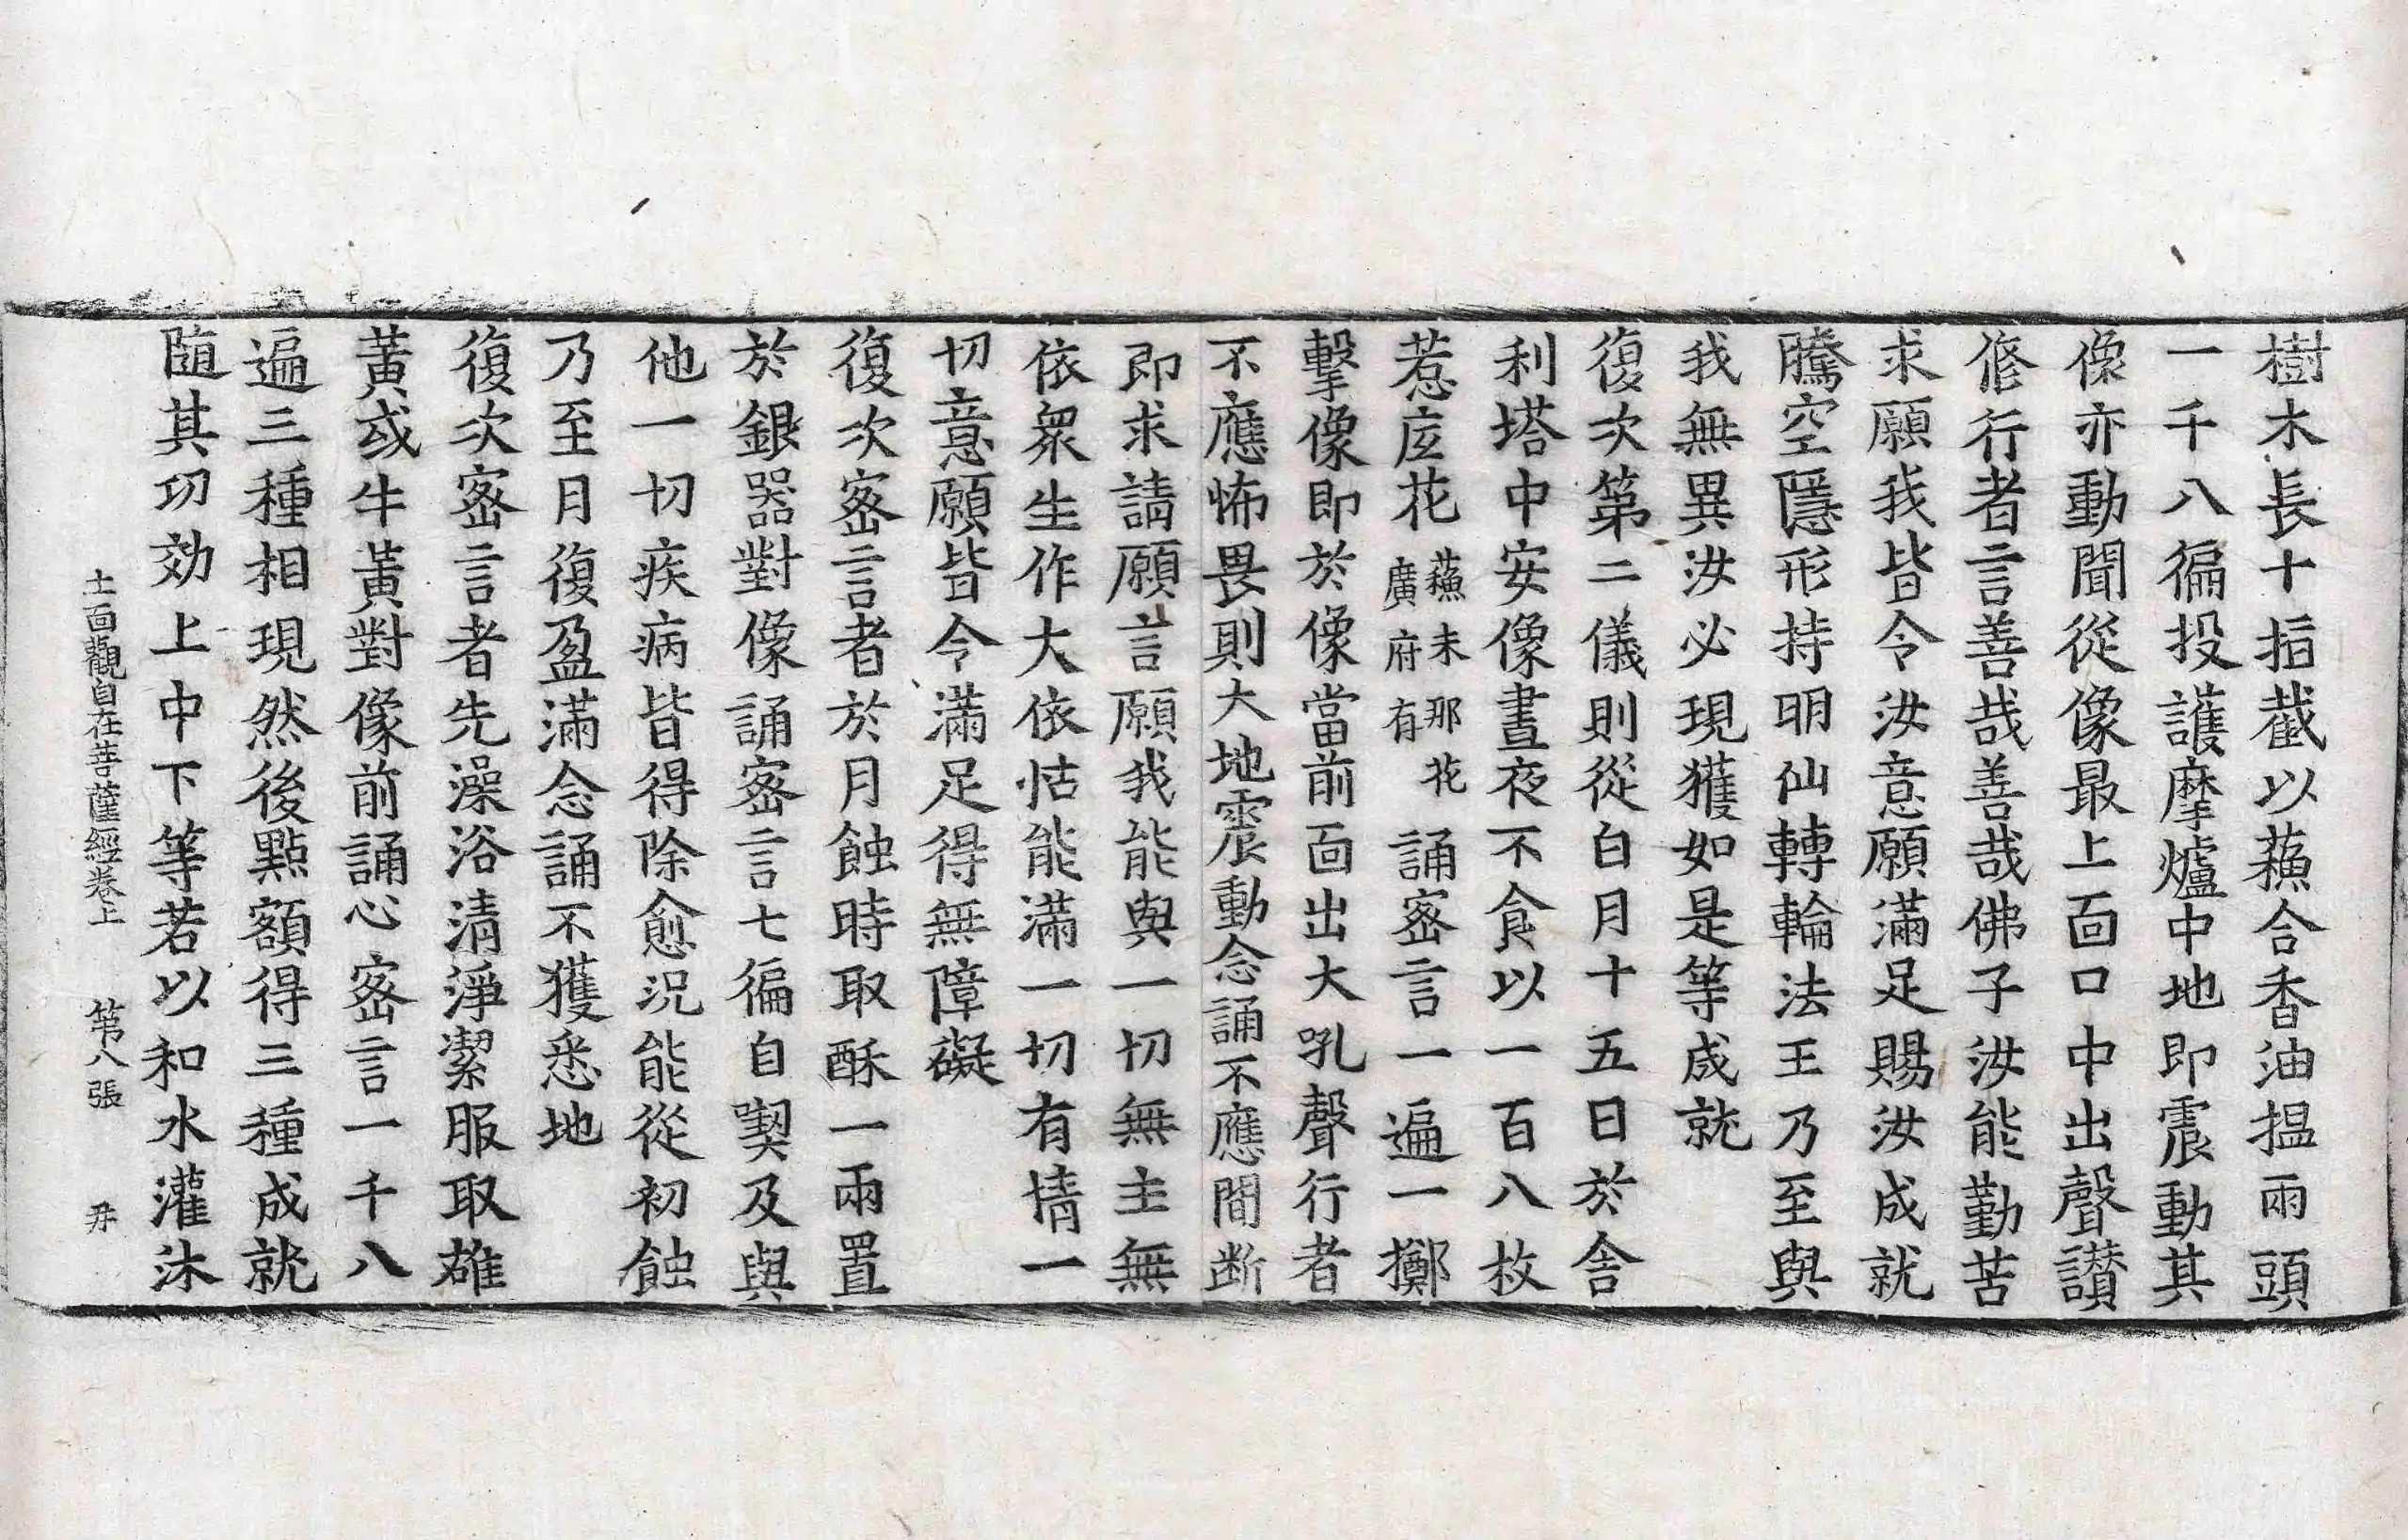 樹木長十指截以蘓合香油搵兩頭
一千八徧投護摩爐中地即震動其
像亦動聞從像最上面口中出聲讃
修行者言善哉善哉佛子汝能勤苦
求願我皆令汝意願滿足賜汝成就
騰空隱形持明仙轉輪法王乃至與
我無異汝必現獲如是等成就
復次第二儀則從白月十五日於舍
利塔中安像晝夜不食以一百八枚
惹庢花蘓末那花廣府有誦密言一遍一擲
擊像即於像當前面出大吼聲行者
不應怖畏則大地震動念誦不應間断
即求請願言願我能與一切無主無
依衆生作大依怙能滿一切有情一
切意願皆令滿足得無障礙
復次密言者於月蝕時取酥一兩置
於銀器對像誦密言七徧自喫及與
他一切疾病皆得除愈況能從初蝕
乃至月復盈滿念誦不獲悉地
復次密言者先澡浴清淨潔服取雄
黃或牛黃對像前誦心密言一千八
遍三種相現然後點額得三種成就
隨其功効上中下等若以和水灌沐
十一面觀自在菩薩經卷上 第八張 丹